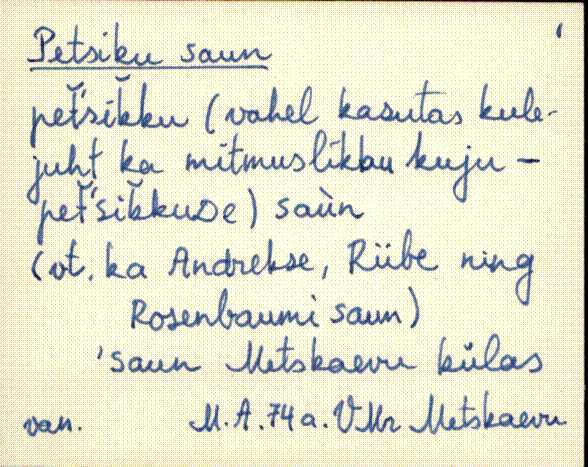 Petsiku saun
pet̆'sik̆ku (vahel kasutas kule-
juht ka mitmuslikku kuju –
pet̆'sik̆kuDe) saùn
(vt. ka Andrekse, Rübe ning
Rosenbaumi saun)
'saun Metskaevu külas
van. M.A. 74 a. VMr Metskaevu